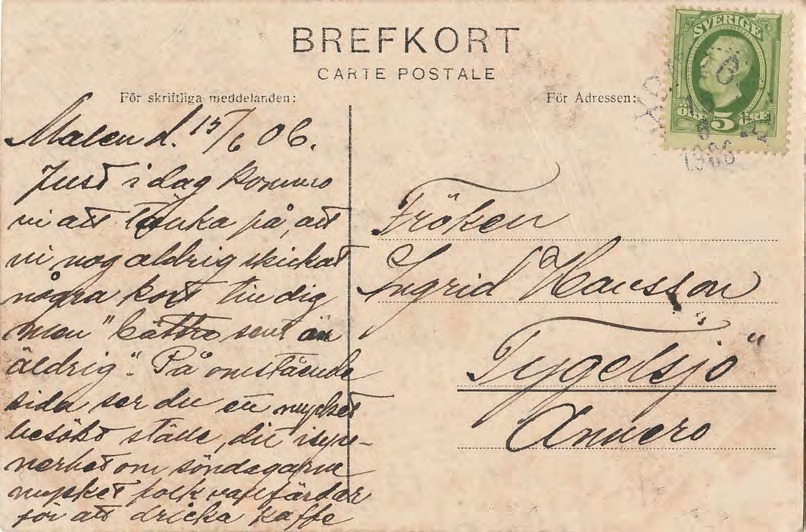 BREFKORT
CARTE POSTALE
För skriftliga meddelanden:
För Adressen:
SVERIGE
ÖRE 5 ÖRE
1906
Malen d. 15/6 06.
Just i dag kommo
vi att tänka på, att
vi nog aldrig skickat
några kort till dig
men "bättre sent än
äldrig". På omstående
sida ser du en mycket
besökt ställe, dit isyn-
nerhet om söndagarne
mycket folk vallfärdar
för att dricka kaffe
Fröken
Ingrid Hansson
"Tygelsjö"